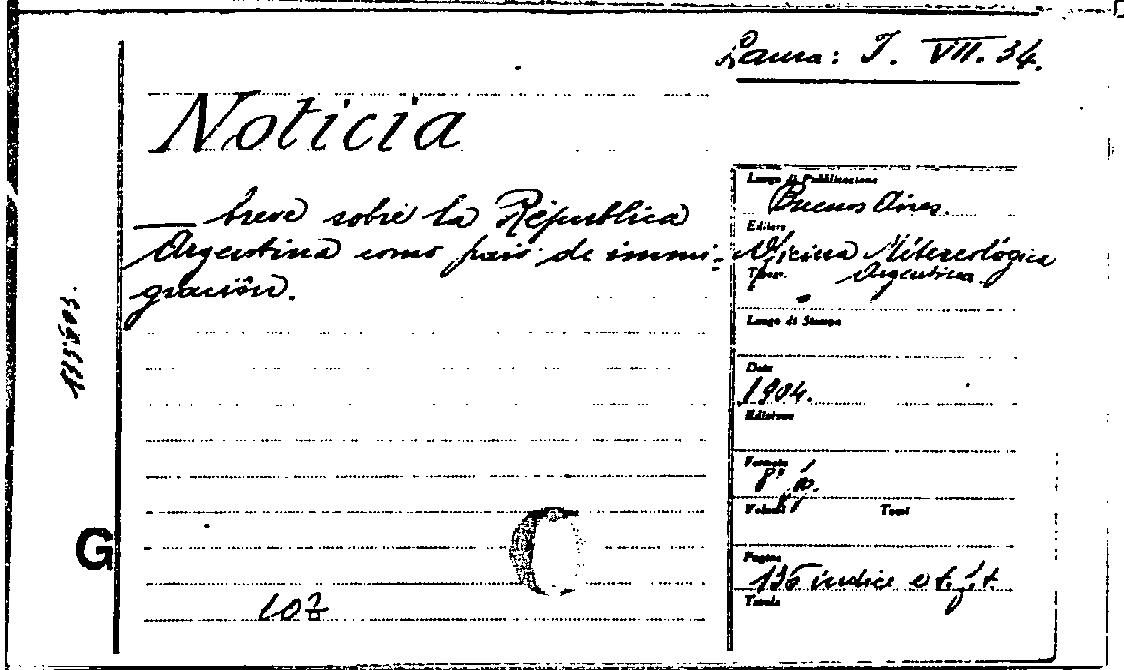 Laura: I. VII. 34.
Noticia
— breve sobre la Républica
Argentina como pais de inmi-
gración.
Luogo di Pubblicazione
Buenos Aires.
Editore
Oficina Météreológica
Argentina.
Luogo di Stampa
Data
1904.
Edizione
Formato
8º
Volumi Tomi
Pagine
índice e
Tavole
G
107